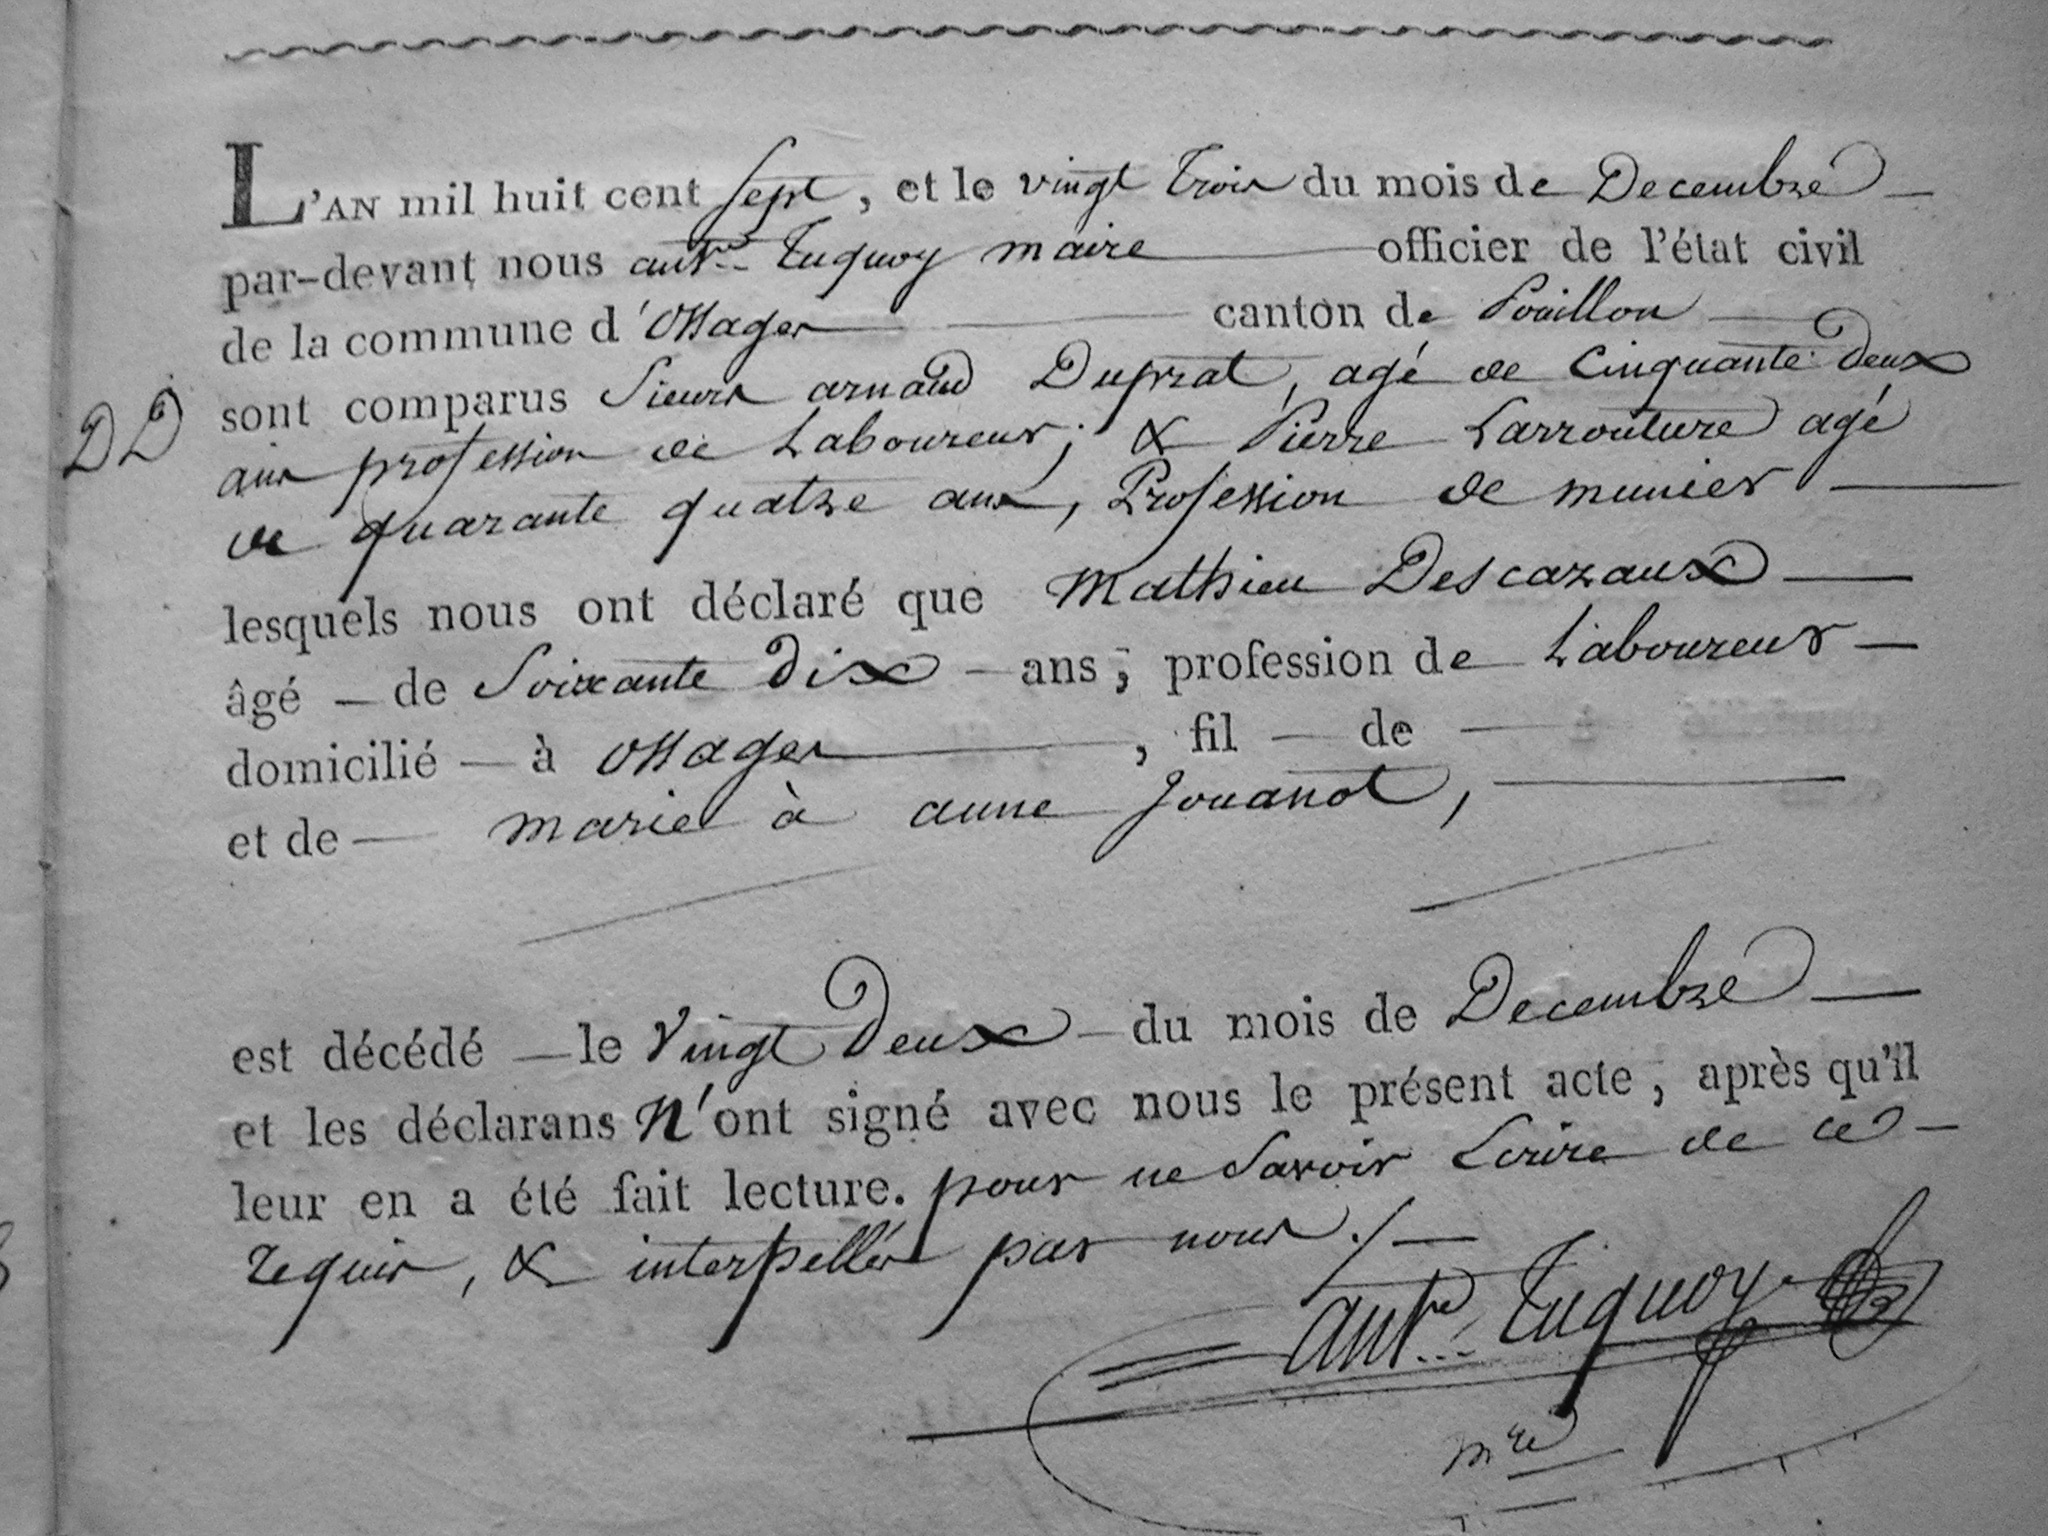 L'AN mil huit cent sept, et le vingt trois du mois de Decembre
par-devant nous ant.ne Tuquoy maire officier de l'état civil
de la commune d'Ossages canton de Pouillon
sont comparus Sieurs arnaud Duprat, agé de Cinquante deux
DD
ans profession de Laboureur; & Pierre Larrouture agé
de quarante quatre ans, Profession de munier
lesquels nous ont déclaré que Mathieu Descazaux
âgé — de Soixante Dix — ans, profession de Laboureur —
domicilié — à Ossages, fil — de —
et de — marié à anne Jouanot,
est décédé — le Vingt Deux — du mois de Decembre —
et les déclarans N'ont signé avec nous le présent acte, après qu'il
leur en a été fait lecture. pour ne Savoir Ecrire de ce —
requis, & interpellés par nous ./—
ant.ne Tuquoy
mre